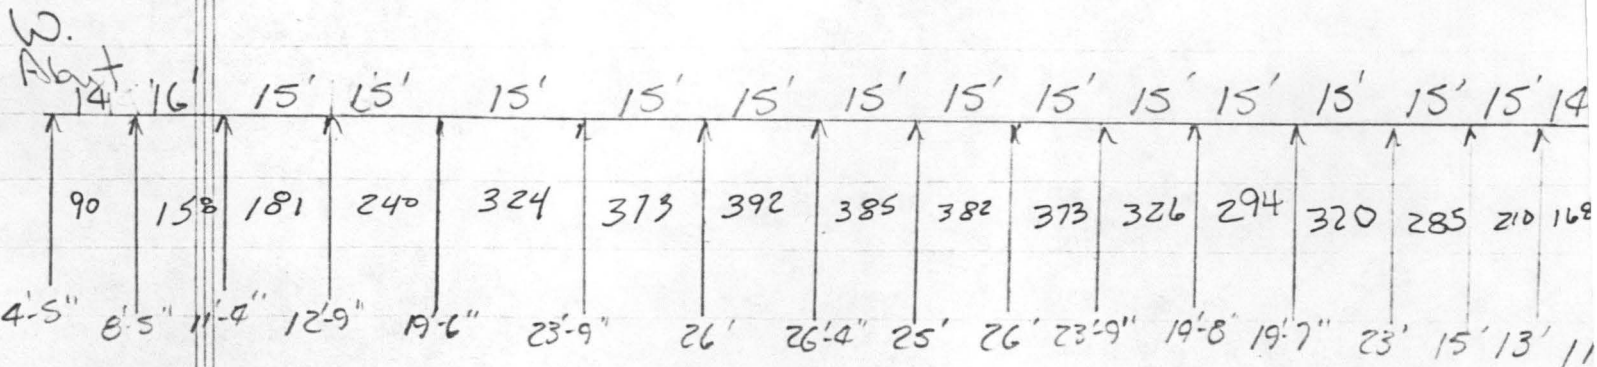 W.
Abut
14' 16' 15' 15' 15' 15' 15' 15' 15' 15' 15' 15' 15' 15' 15' 14
90 158 181 240 324 373 392 385 382 373 326 294 320 285 210 168
4'-5" 8'-5" 11'-4" 12'-9" 19'-6" 23'-9" 26' 26'-4" 25' 26' 23'-9" 19'-8' 19'-7" 23' 15' 13' 11